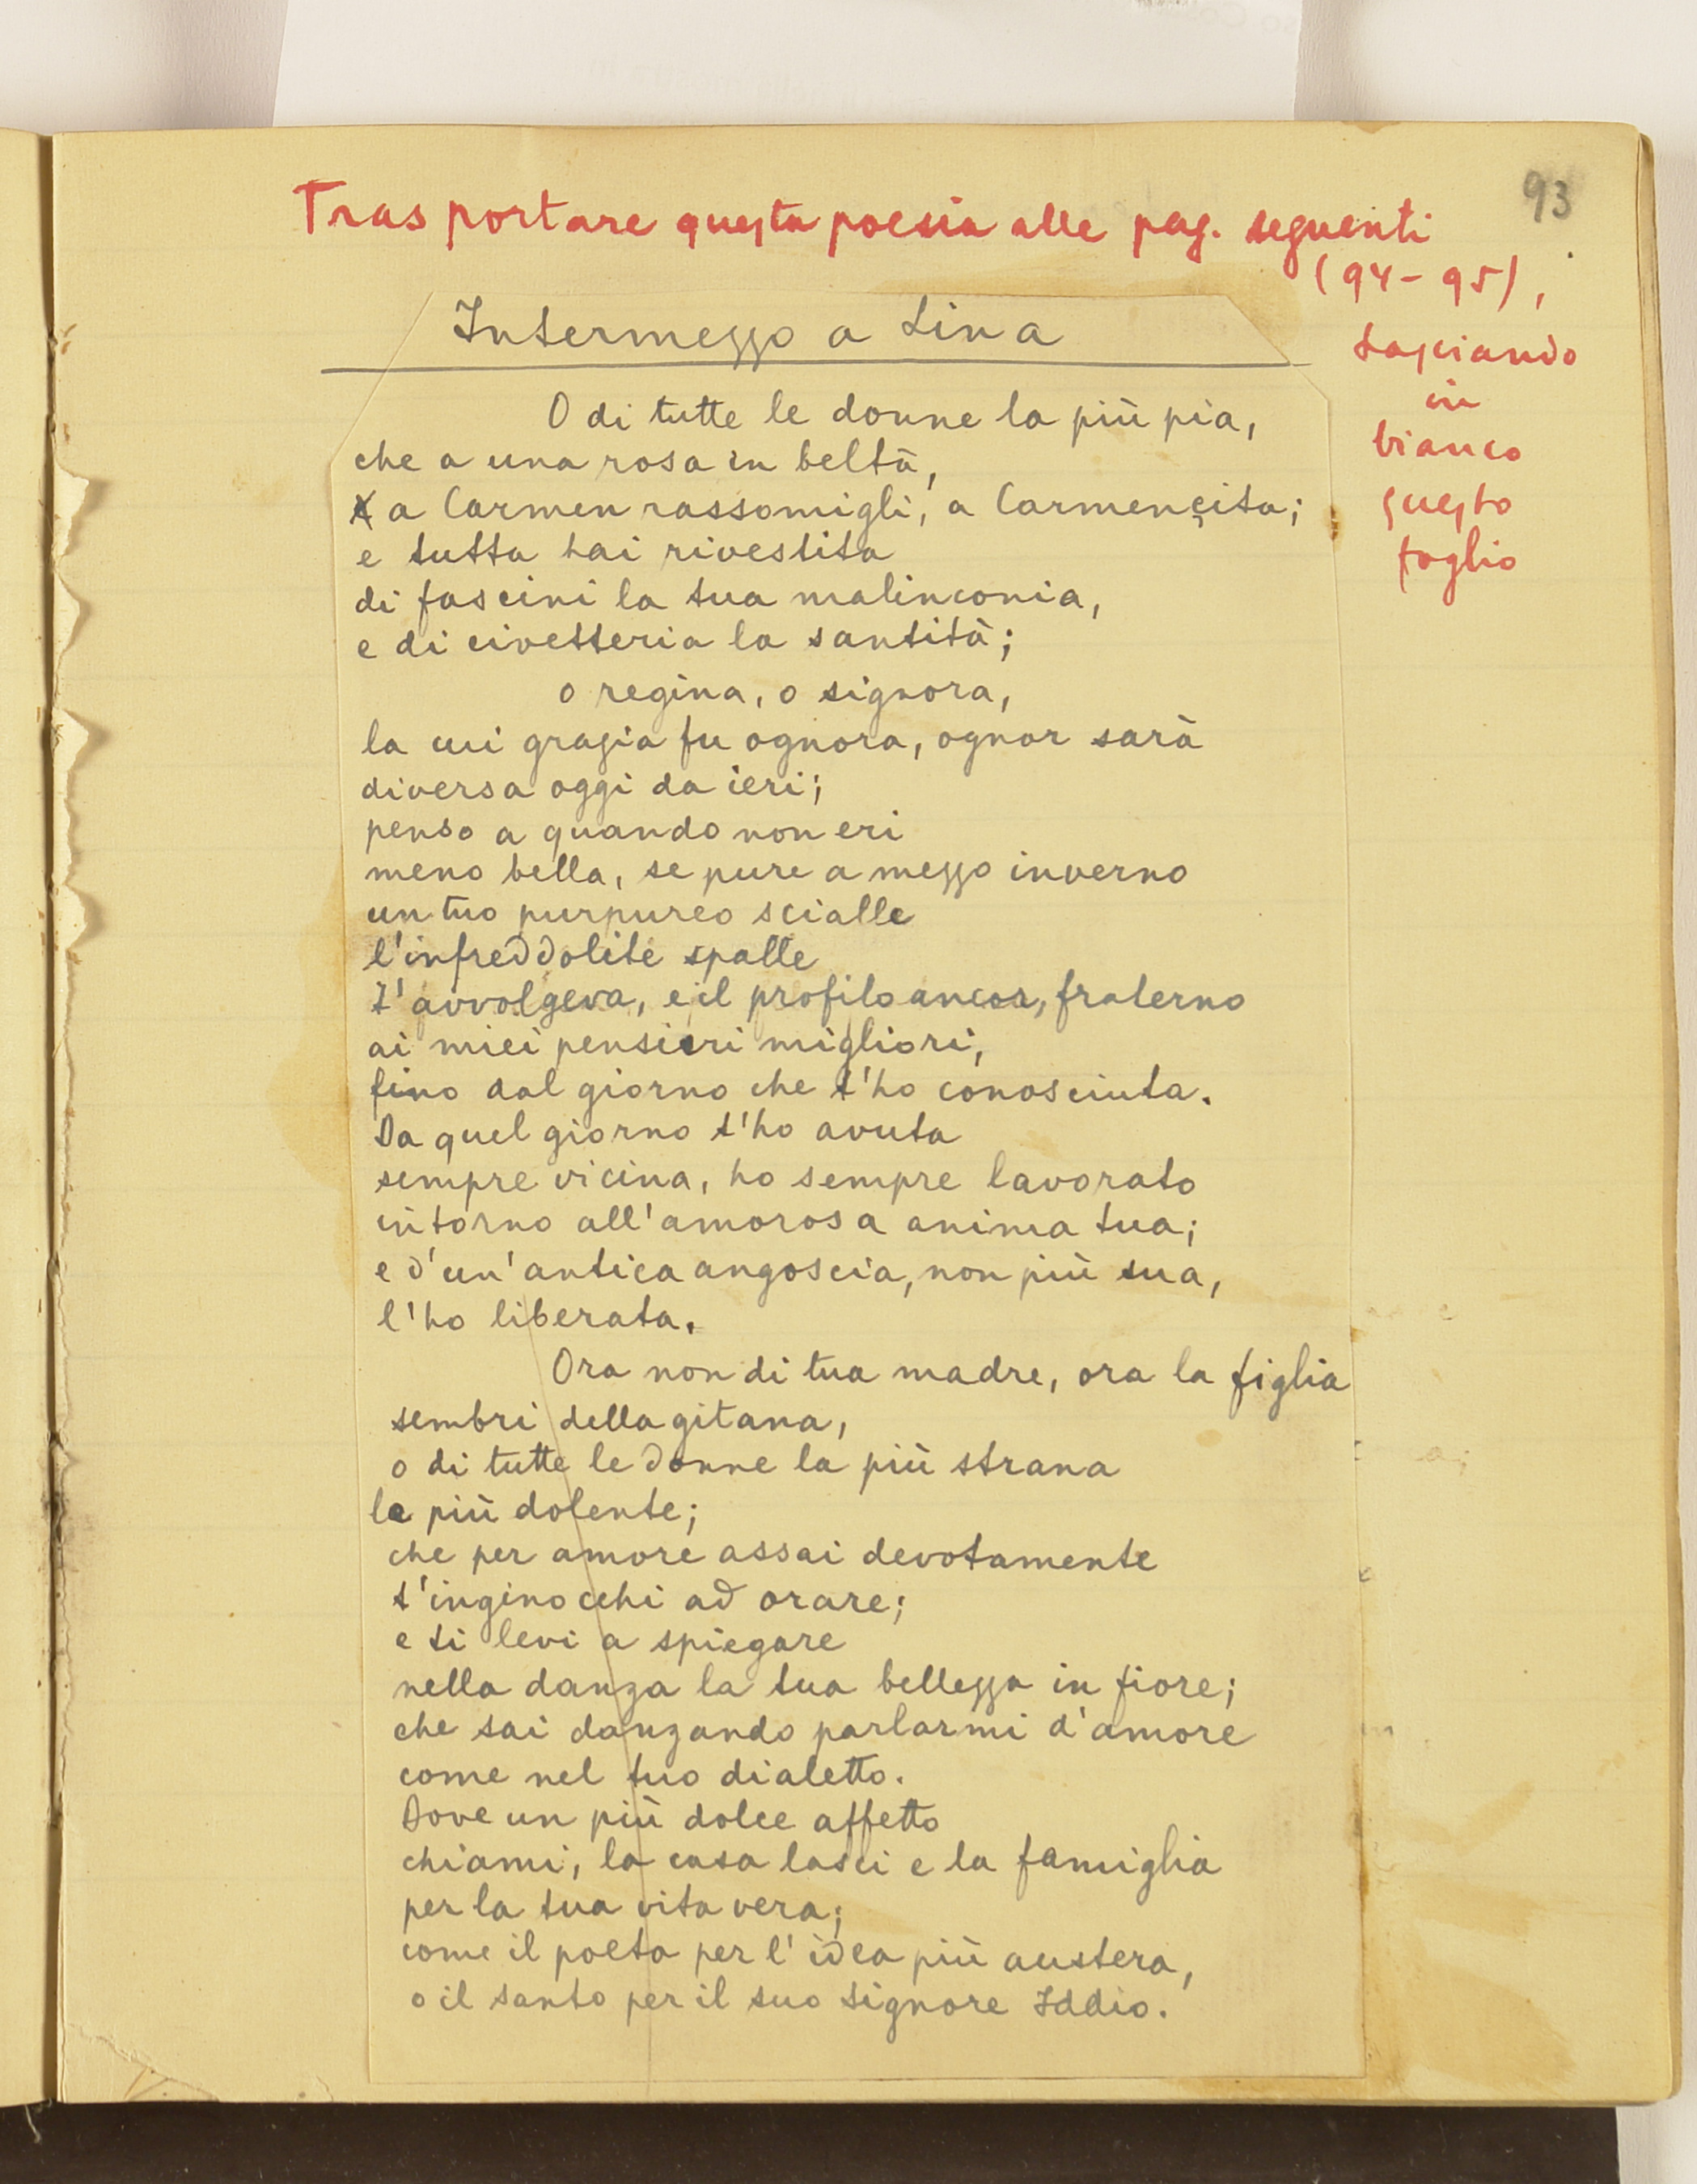 93
Trasportare questa poesia alle pag. seguenti
(94-95),
lasciando
in
bianco
questo
foglio
Intermezzo a Lina
O di tutte le donne la più pia,
che a una rosa in beltà,
a Carmen rassomigli, a Carmençita;
e tutta hai rivestita
di fascini la tua malinconia,
e di civetteria la santità;
o regina, o signora,
la cui grazia fu ognora, ognor sarà
diversa oggi da ieri;
penso a quando non eri
meno bella, se pure a mezzo inverno
un tuo purpureo scialle
l'infreddolite spalle
t'avvolgeva, e il profilo ancor, fraterno
ai miei pensieri migliori,
fino dal giorno che t'ho conosciuta.
Da quel giorno t'ho avuta
sempre vicina, ho sempre lavorato
intorno all'amorosa anima tua;
e d'un'antica angoscia, non più sua,
l'ho liberata.
Ora non di tua madre, ora la figlia
sembri della gitana,
o di tutte le donne la più strana
la più dolente;
che per amore assai devotamente
t'inginocchi ad orare;
e ti levi a spiegare
nella danza la tua bellezza in fiore;
che sai danzando parlarmi d'amore
come nel tuo dialetto.
Dove un più dolce affetto
chiami, la casa lasci e la famiglia
per la tua vita vera;
come il poeta per l'idea più austera,
o il santo per il suo signore Iddio.